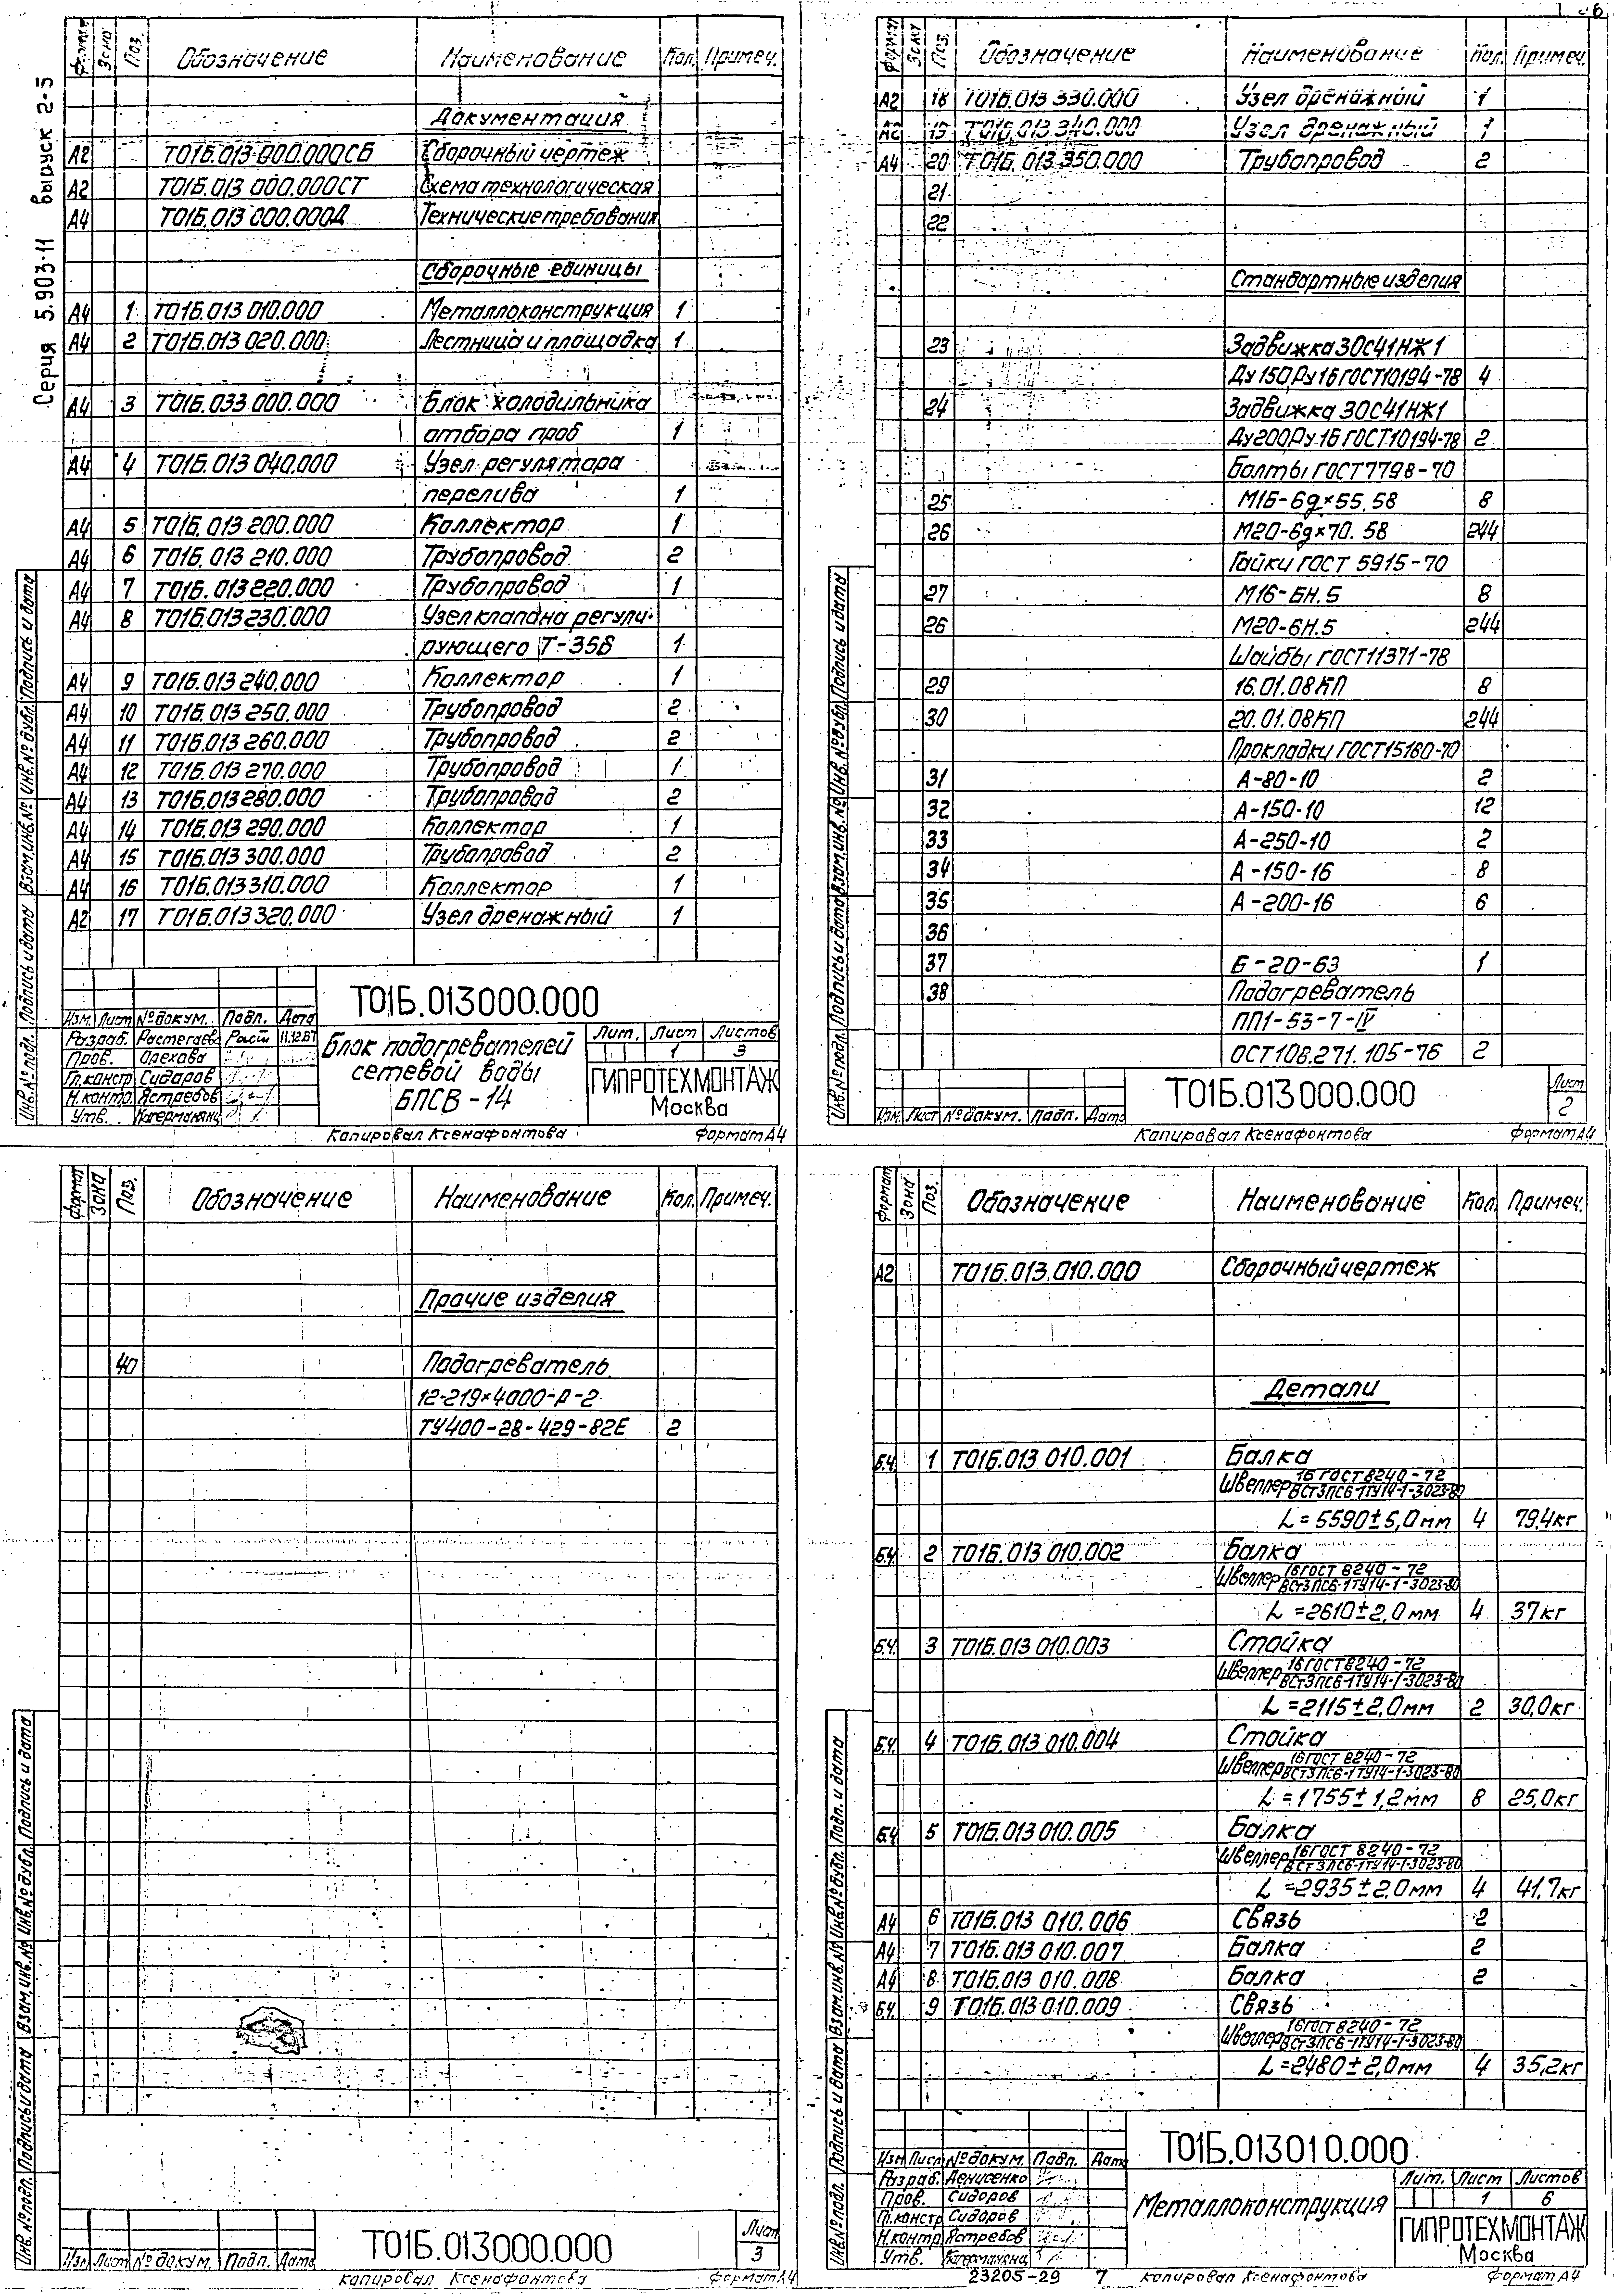 Серия 5.903-11 выпуск 2-3
Формат Зона Поз. Обозначение Наименование Кол. Примеч.
Документация
А2 Т01Б.013 000.000СБ Сборочный чертеж
А2 Т01Б.013 000.000СТ Схема технологическая
А4 Т01Б.013 000.000Д Технические требования
Сборочные единицы
А4 1 Т01Б.013 010.000 Металлоконструкция 1
А4 2 Т01Б.013 020.000 Лестница и площадка 1
А4 3 Т01Б.033 000.000 Блок холодильника
отбора проб 1
А4 4 Т01Б.013 040.000 Узел регулятора
перелива 1
А4 5 Т01Б.013 200.000 Коллектор 1
А4 6 Т01Б.013 210.000 Трубопровод 2
А4 7 Т01Б.013 220.000 Трубопровод 1
А4 8 Т01Б.013 230.000 Узел клапана регули-
рующего Т-35Б 1
А4 9 Т01Б.013 240.000 Коллектор 1
А4 10 Т01Б.013 250.000 Трубопровод 2
А4 11 Т01Б.013 260.000 Трубопровод 2
А4 12 Т01Б.013 270.000 Трубопровод 1
А4 13 Т01Б.013 280.000 Трубопровод 2
А4 14 Т01Б.013 290.000 Коллектор 1
А4 15 Т01Б.013 300.000 Трубопровод 2
А4 16 Т01Б.013 310.000 Коллектор 1
А2 17 Т01Б.013 320.000 Узел дренажный 1
Инв.№ подл. Подпись и дата Взам.инв.№ Инв.№ дубл. Подпись и дата
Т01Б.013000.000
Изм. Лист № докум. Подп. Дата
Разраб. Растегаева Раст 11.12.87
Пров. Орехова
Гл.констр Сидоров
Н.контр. Ястребов
Утв.
Блок подогревателей
сетевой воды
БПСВ-14
Лит. Лист Листов
1 3
ГИПРОТЕХМОНТАЖ
Москва
Копировал Ксенафонтова Формат А4
Формат Зона Поз. Обозначение Наименование Кол. Примеч.
А2 18 Т01Б.013 330.000 Узел дренажный 1
А2 19 Т01Б.013 340.000 Узел дренажный 1
А4 20 Т01Б.013 350.000 Трубопровод 2
21
22
Стандартные изделия
23 Задвижка 30с41НЖ1
Ду 150,Ру 16 ГОСТ10194-78 4
24 Задвижка 30с41НЖ1
Ду200,Ру 16 ГОСТ10194-78 2
Болты ГОСТ7798-70
25 М16-6g×55.58 8
26 М20-6g×70.58 244
Гайки ГОСТ 5915-70
27 М16-6Н.5 8
28 М20-6Н.5 244
Шайбы ГОСТ11371-78
29 16.01.08КП 8
30 20.01.08КП 244
Прокладки ГОСТ15180-70
31 А-80-10 2
32 А-150-10 12
33 А-250-10 2
34 А-150-16 8
35 А-200-16 6
36
37 Б-20-63 1
38 Подогреватель
ПП1-53-7-IV
ОСТ108.271.105-76 2
Инв.№ подл. Подпись и дата Взам.инв.№ Инв.№ дубл. Подпись и дата
Изм. Лист № докум. Подп. Дата
Т01Б.013000.000
Лист
2
Копировал Ксенафонтова Формат А4
Формат Зона Поз. Обозначение Наименование Кол. Примеч.
Прочие изделия
40 Подогреватель
12-219×4000-Р-2
ТУ400-28-429-82Е 2
Инв.№ подл. Подпись и дата Взам.инв.№ Инв.№ дубл. Подпись и дата
Изм. Лист № докум. Подп. Дата
Т01Б.013000.000
Лист
3
Копировал Ксенафонтова Формат А4
Формат Зона Поз. Обозначение Наименование Кол. Примеч.
А2 Т01Б.013.010.000 Сборочный чертеж
Детали
Б.Ч. 1 Т01Б.013 010.001 Балка
Швеллер 16 ГОСТ 8240-72
ВСт3ПС6-1ТУ14-1-3023-80
L=5590±5,0мм 4 79,4кг
Б.Ч. 2 Т01Б.013 010.002 Балка
Швеллер 16 ГОСТ 8240-72
ВСт3ПС6-1ТУ14-1-3023-80
L=2610±2,0мм 4 37кг
Б.Ч. 3 Т01Б.013 010.003 Стойка
Швеллер 16 ГОСТ 8240-72
ВСт3ПС6-1ТУ14-1-3023-80
L=2115±2,0мм 2 30,0кг
Б.Ч. 4 Т01Б.013 010.004 Стойка
Швеллер 16 ГОСТ 8240-72
ВСт3ПС6-1ТУ14-1-3023-80
L=1755±1,2мм 8 25,0кг
Б.Ч. 5 Т01Б.013 010.005 Балка
Швеллер 16 ГОСТ 8240-72
ВСт3ПС6-1ТУ14-1-3023-80
L=2935±2,0мм 4 41,7кг
А4 6 Т01Б.013 010.006 Связь 2
А4 7 Т01Б.013 010.007 Балка 2
А4 8 Т01Б.013 010.008 Балка 2
Б.Ч. 9 Т01Б.013 010.009 Связь
Швеллер 16 ГОСТ 8240-72
ВСт3ПС6-1ТУ14-1-3023-80
L=2480±2,0мм 4 35,2кг
Инв.№ подл. Подпись и дата Взам.инв.№ Инв.№ дубл. Подп. и дата
Т01Б.013010.000
Изм Лист № докум. Подп. Дата
Разраб. Денисенко
Пров. Сидоров
Гл.констр Сидоров
Н.контр Ястребов
Утв.
Металлоконструкция
Лит. Лист Листов
1 6
ГИПРОТЕХМОНТАЖ
Москва
23205-29 7 Копировал Ксенафонтова Формат А4